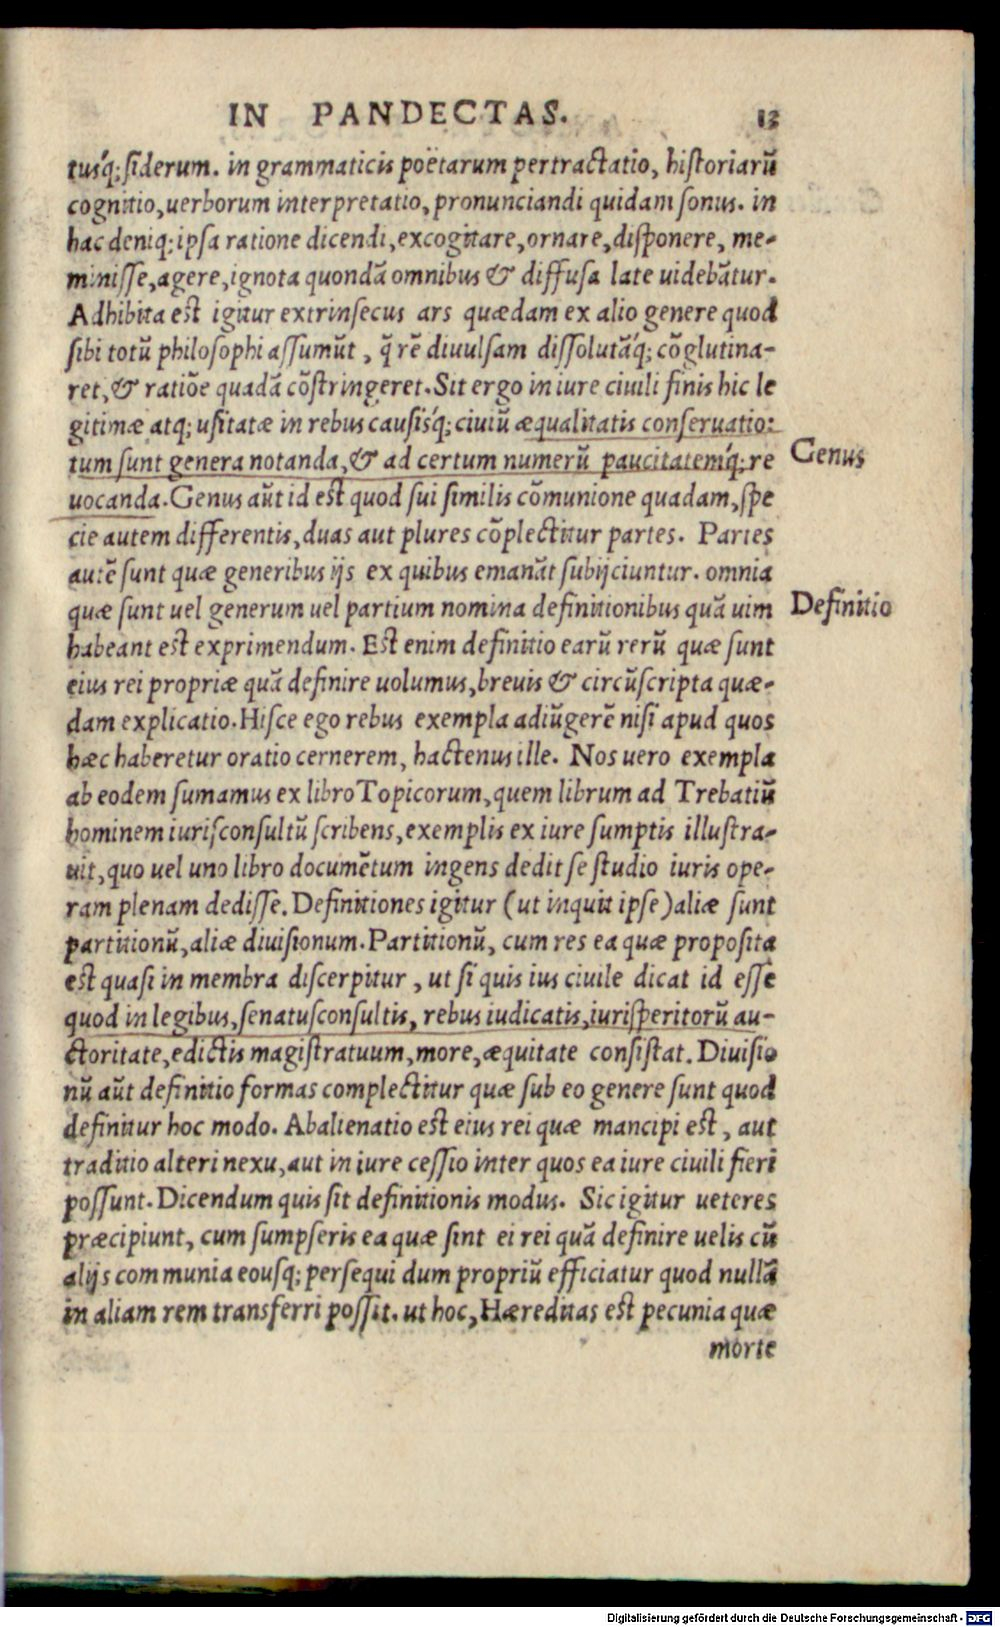 IN PANDECTAS. 13
tusq́; siderum. in grammaticis poëtarum pertractatio, historiarũ
cognitio, uerborum interpretatio, pronunciandi quidam sonus. in
hac deniq; ipsa ratione dicendi, excogitare, ornare, disponere, me-
minisse, agere, ignota quondã omnibus & diffusa late uidebãtur.
Adhibita est igitur extrinsecus ars quædam ex alio genere quod
sibi totũ philosophi assumũt, q̃ rẽ diuulsam dissolutãq́; cõglutina-
ret, & ratiõe quadã cõstringeret. Sit ergo in iure ciuili finis hic le
gitimæ atq; usitatæ in rebus causisq́; ciuiũ æqualitatis conseruatio:
tum sunt genera notanda, & ad certum numerũ paucitatemq́; re
Genus
uocanda. Genus aũt id est quod sui similis cõmunione quadam, spe
cie autem differentis, duas aut plures cõplectitur partes. Partes
autẽ sunt quæ generibus ijs ex quibus emanãt subijciuntur. omnia
quæ sunt uel generum uel partium nomina definitionibus quã uim
Definitio
habeant est exprimendum. Est enim definitio earũ rerũ quæ sunt
eius rei propriæ quã definire uolumus, breuis & circũscripta quæ-
dam explicatio. Hisce ego rebus exempla adiũgerẽ nisi apud quos
hæc haberetur oratio cernerem, hactenus ille. Nos uero exempla
ab eodem sumamus ex libro Topicorum, quem librum ad Trebatiũ
hominem iurisconsultũ scribens, exemplis ex iure sumptis illustra-
uit, quo uel uno libro documẽtum ingens dedit se studio iuris ope-
ram plenam dedisse. Definitiones igitur (ut inquit ipse) aliæ sunt
partitionũ, aliæ diuisionum. Partitionũ, cum res ea quæ proposita
est quasi in membra discerpitur, ut si quis ius ciuile dicat id esse
quod in legibus, senatusconsultis, rebus iudicatis, iurisperitorũ au-
ctoritate, edictis magistratuum, more, æquitate consistat. Diuisio
nũ aũt definitio formas complectitur quæ sub eo genere sunt quod
definitur hoc modo. Abalienatio est eius rei quæ mancipi est, aut
traditio alteri nexu, aut in iure cessio inter quos ea iure ciuili fieri
possunt. Dicendum quis sit definitionis modus. Sic igitur ueteres
præcipiunt, cum sumpseris ea quæ sint ei rei quã definire uelis cũ
alijs communia eousq; persequi dum propriũ efficiatur quod nullã
in aliam rem transferri possit. ut hoc, Hæreditas est pecunia quæ
morte
Digitalisierung gefördert durch die Deutsche Forschungsgemeinschaft - DFG